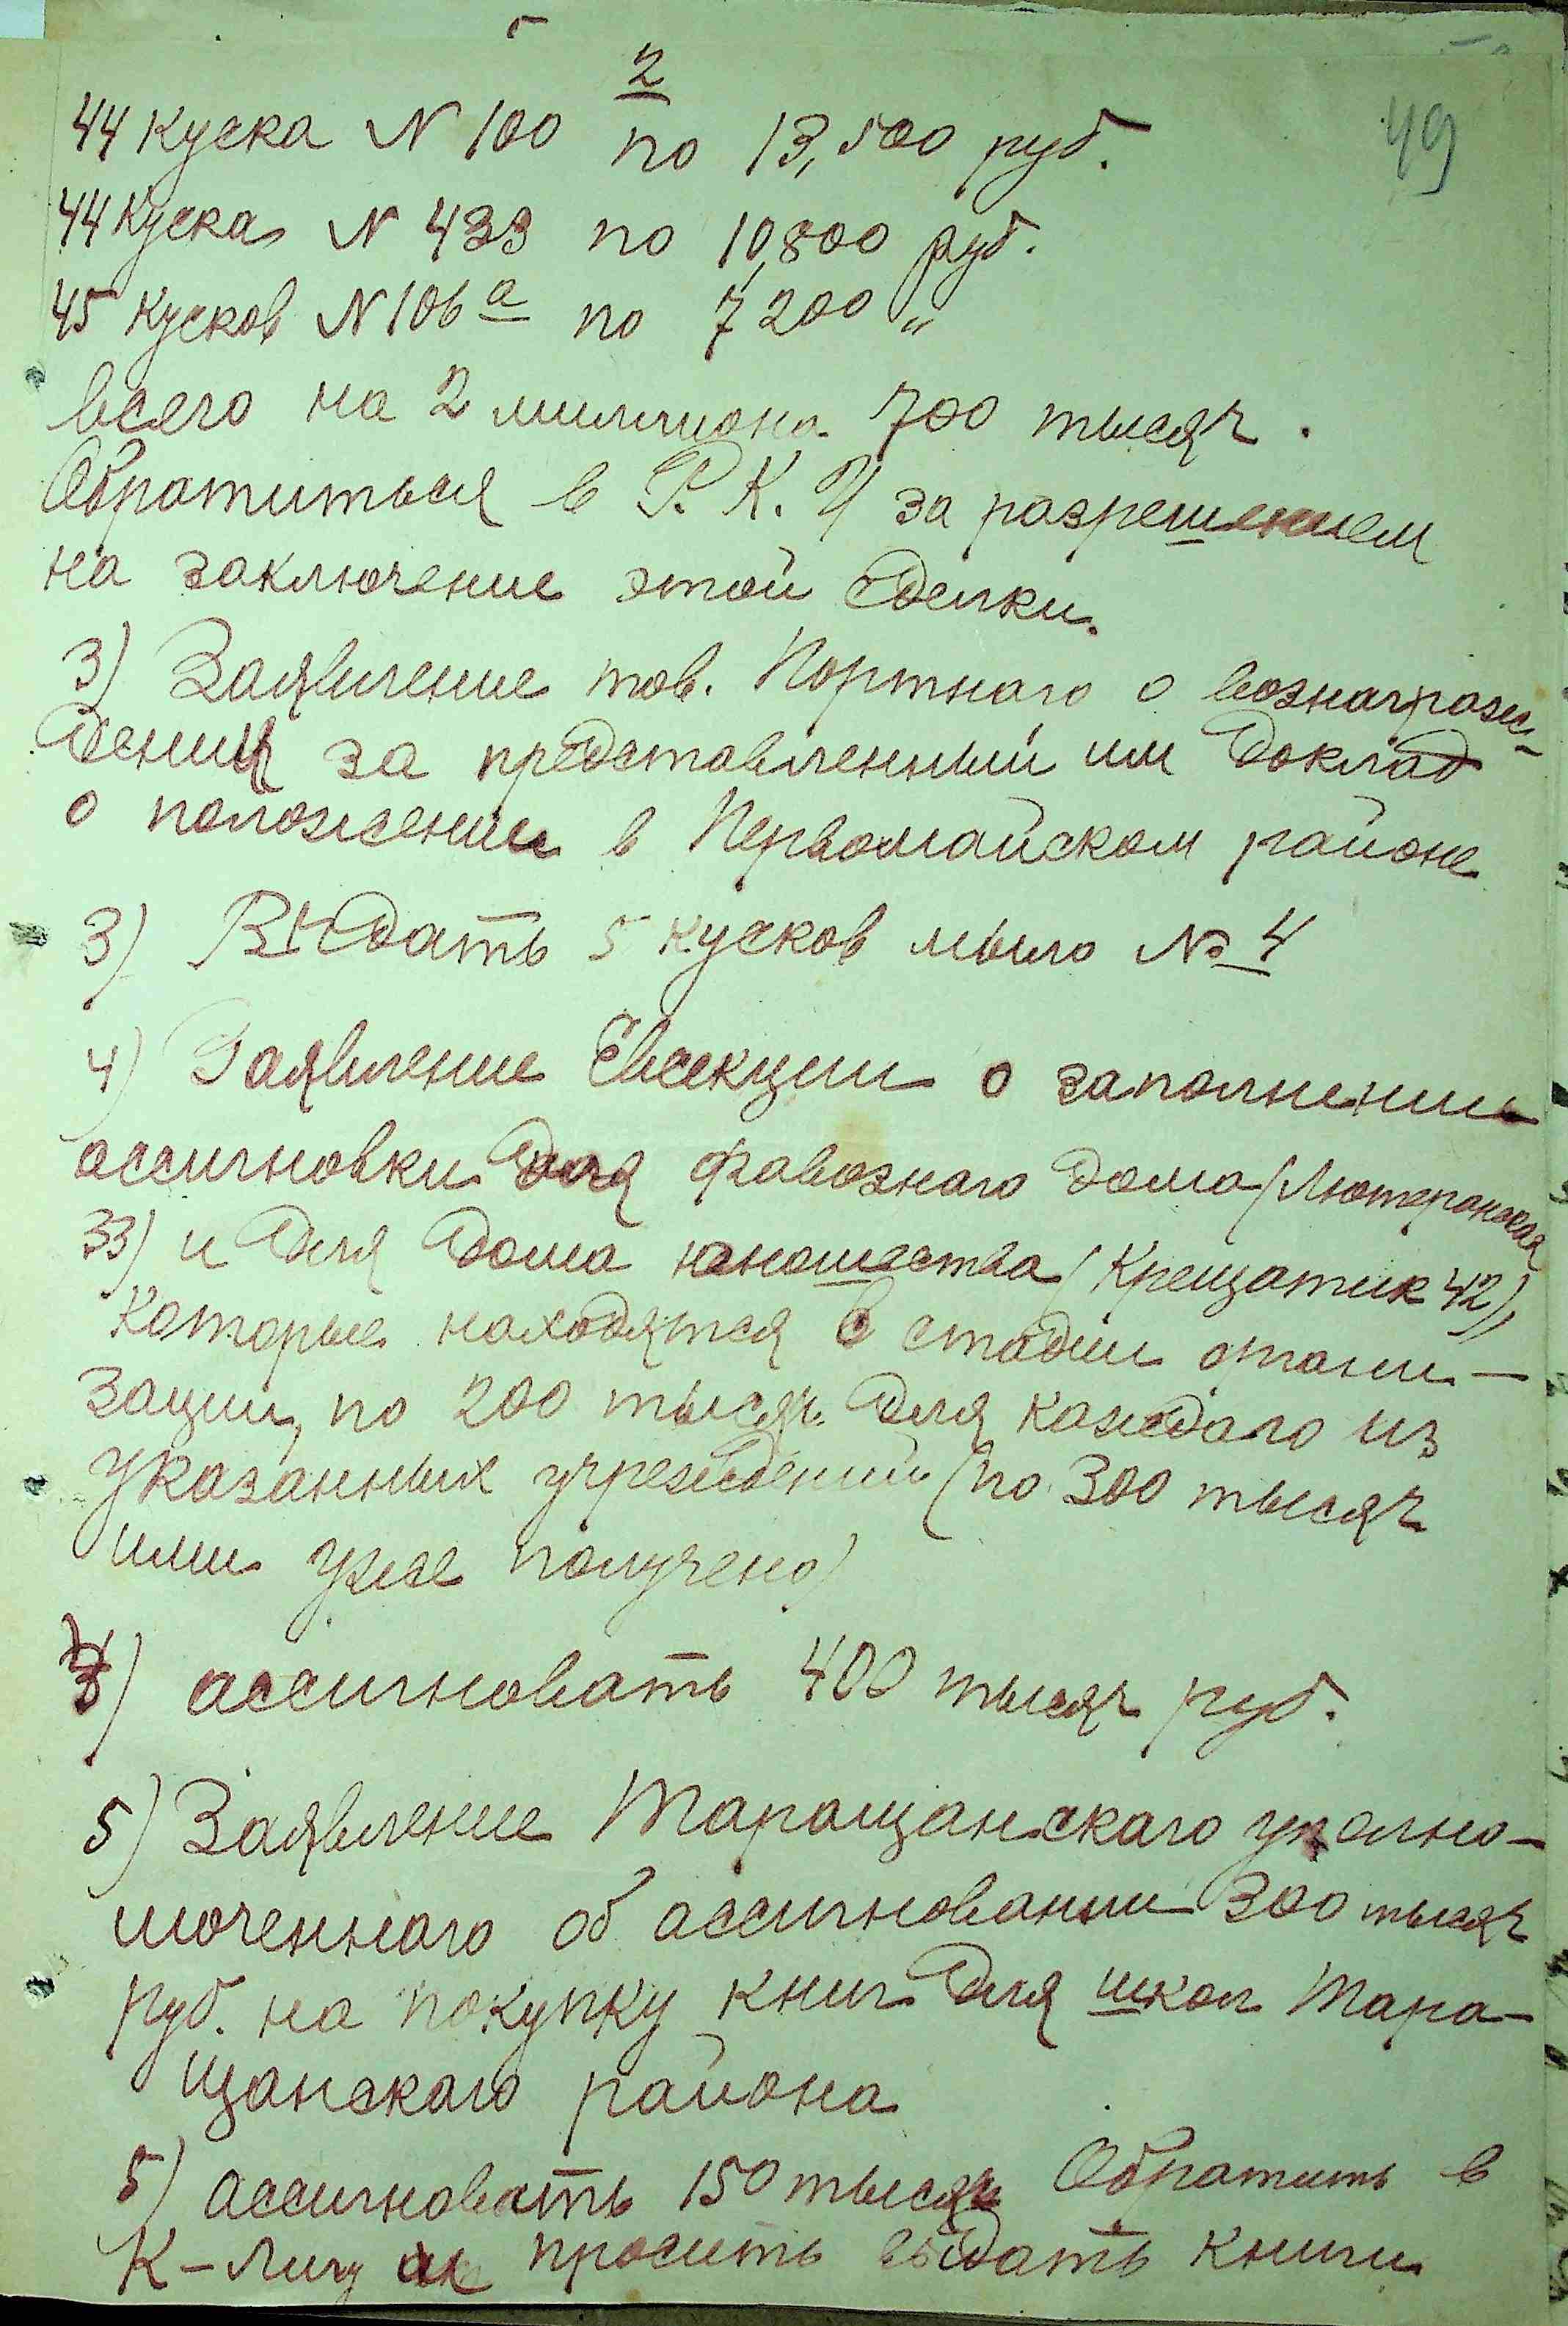 2
49
44 куска N 100 по 13,500 руб.
44 куска N 433 по 10,800 руб.
45 кусков N 106 а по 7200 "
всего на 2 миллиона 700 тысяч.
Обратиться в Р. К. И за разрешением
на заключение этой сделки.
3) Заявление тов. Портнаго о вознаграж-
дении за представленный им доклад
о положении в Первомайском районе
3) Выдать 5 кусков мыло № 4
4) Заявление Евсекции о заполнении
ассигновки для дома (Лютеранская
33) и для дома юношества (Крещатик 42),
которые находятся в стадии органи-
зации, по 200 тысяч для каждаго из
указанных учреждений (по 300 тысяч
ими уже получено)
4) ассигновать 400 тысяч руб.
5) Заявление Таращанскаго уполно-
моченнаго об ассигновании 300 тысяч
руб. на покупку книг для школ Тара-
щанскаго района
5) ассигновать 150 тысяч Обратить в
К-Лигу просить выдать книги